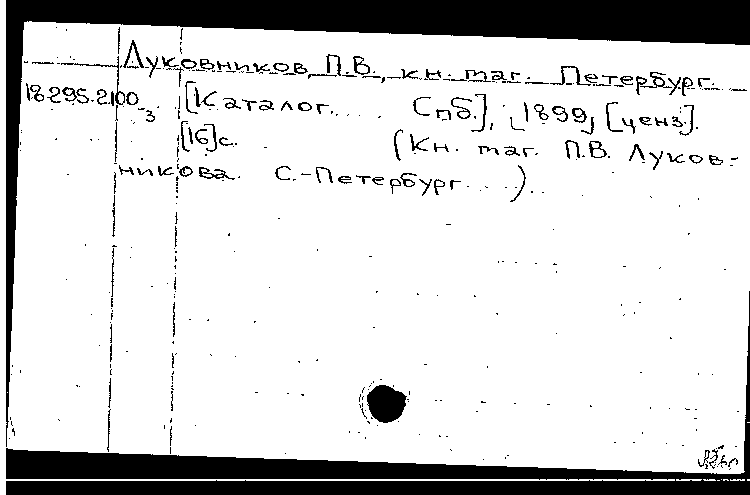 Луковников, П.В., кн. маг. Петербург.
18.295.2.100 [Каталог.... Спб.], 1899, [ценз.].
3
[16]с. (Кн. маг. П.В. Луков-
никова. С.-Петербург....).